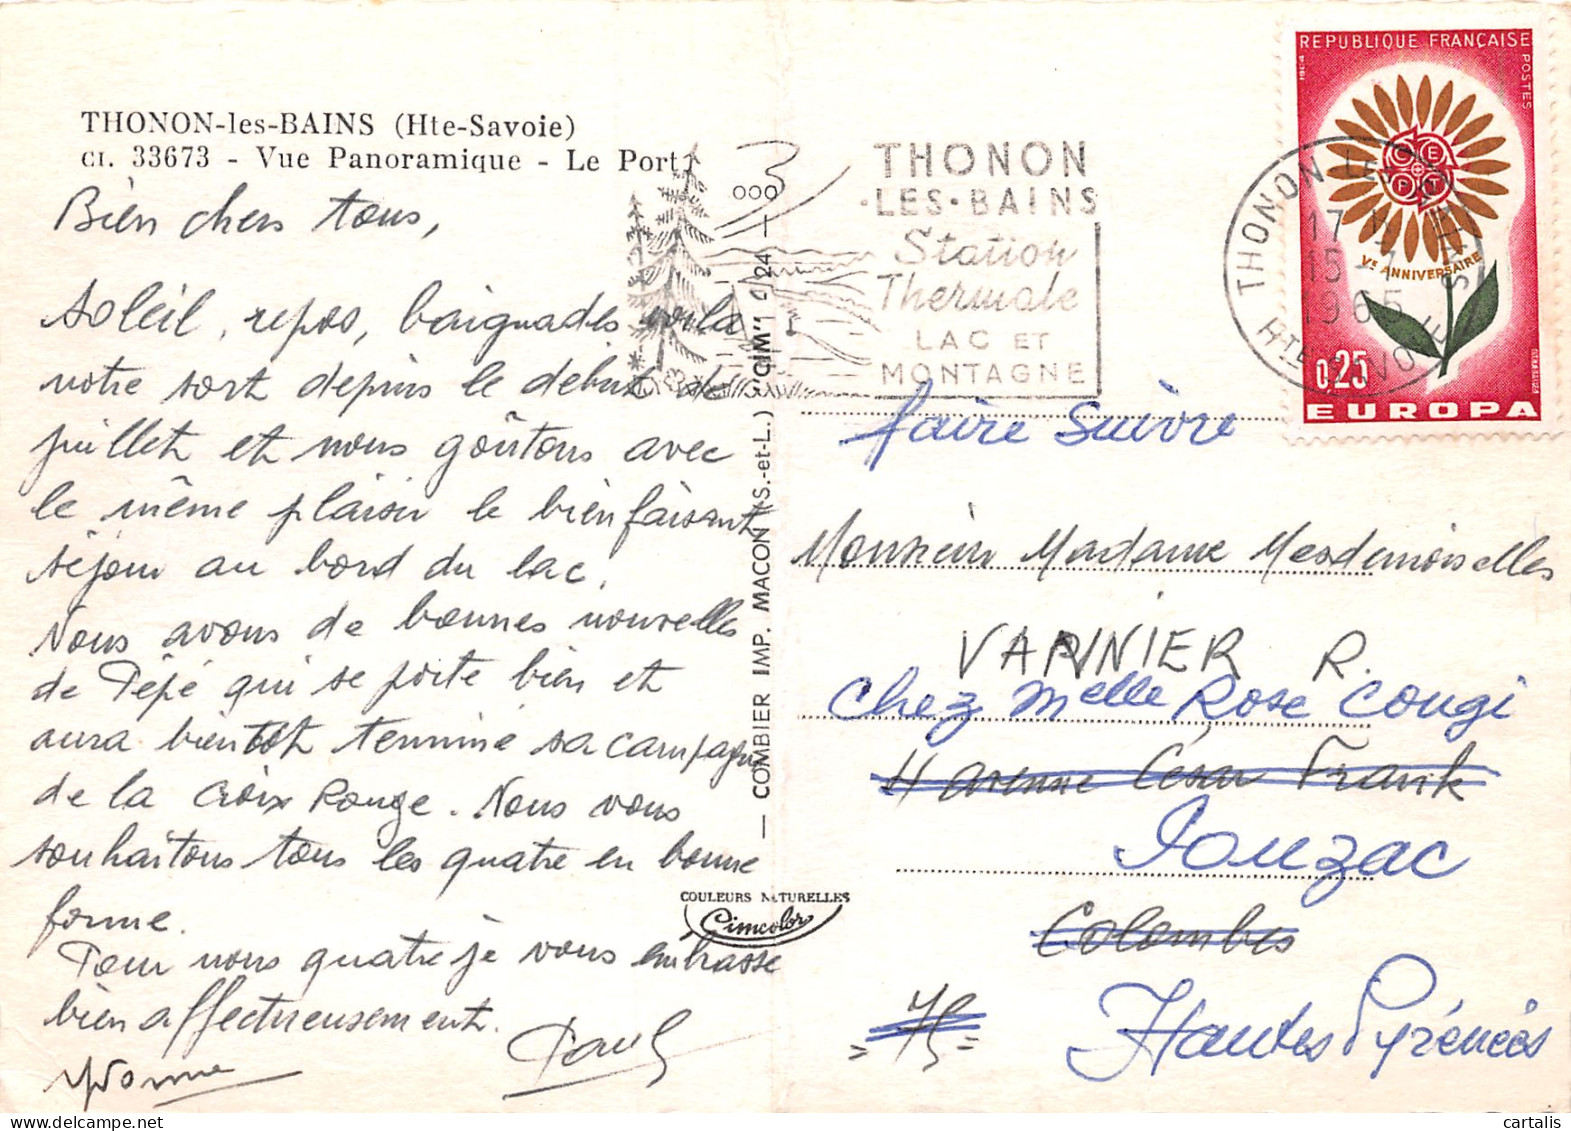 THONON-les-BAINS (Hte-Savoie)
CI. 33673 - Vue Panoramique - Le Port
Bien chers tous,
Soleil, repos, baignades, voila
notre sort depuis le debut de
juillet et nous goûtons avec
le même plaisir le bienfaisant
séjour au bord du lac.
Nous avons de bonnes nouvelles
de Pépé qui se porte bien et
aura bientôt terminé sa campagne
de la Croix Rouge. Nous vous
souhaitons tous les quatre en bonne
forme.
Pour nous quatre je vous embrasse
bien affectueusement.
Yvonne
Paul
COMBIER IMP. MACON (S.-et-L.) "CIM"
COULEURS NATURELLES
Cimcolor
000
THONON
·LES·BAINS
Station
Thermale
LAC ET
MONTAGNE
THONON LES BAINS
17 H
15 - 7
1965
HTE SAVOIE
REPUBLIQUE FRANÇAISE
POSTES
1964
CEPT
Ve ANNIVERSAIRE
0,25
EUROPA
faire Suivre
Monsieur Madame Mesdemoiselles
VARNIER R.
Chez Melle Rose Cougi
4 avenue César Franck
Pouzac
Colombes
Hautes Pyrénées
cartalis
© cartalis